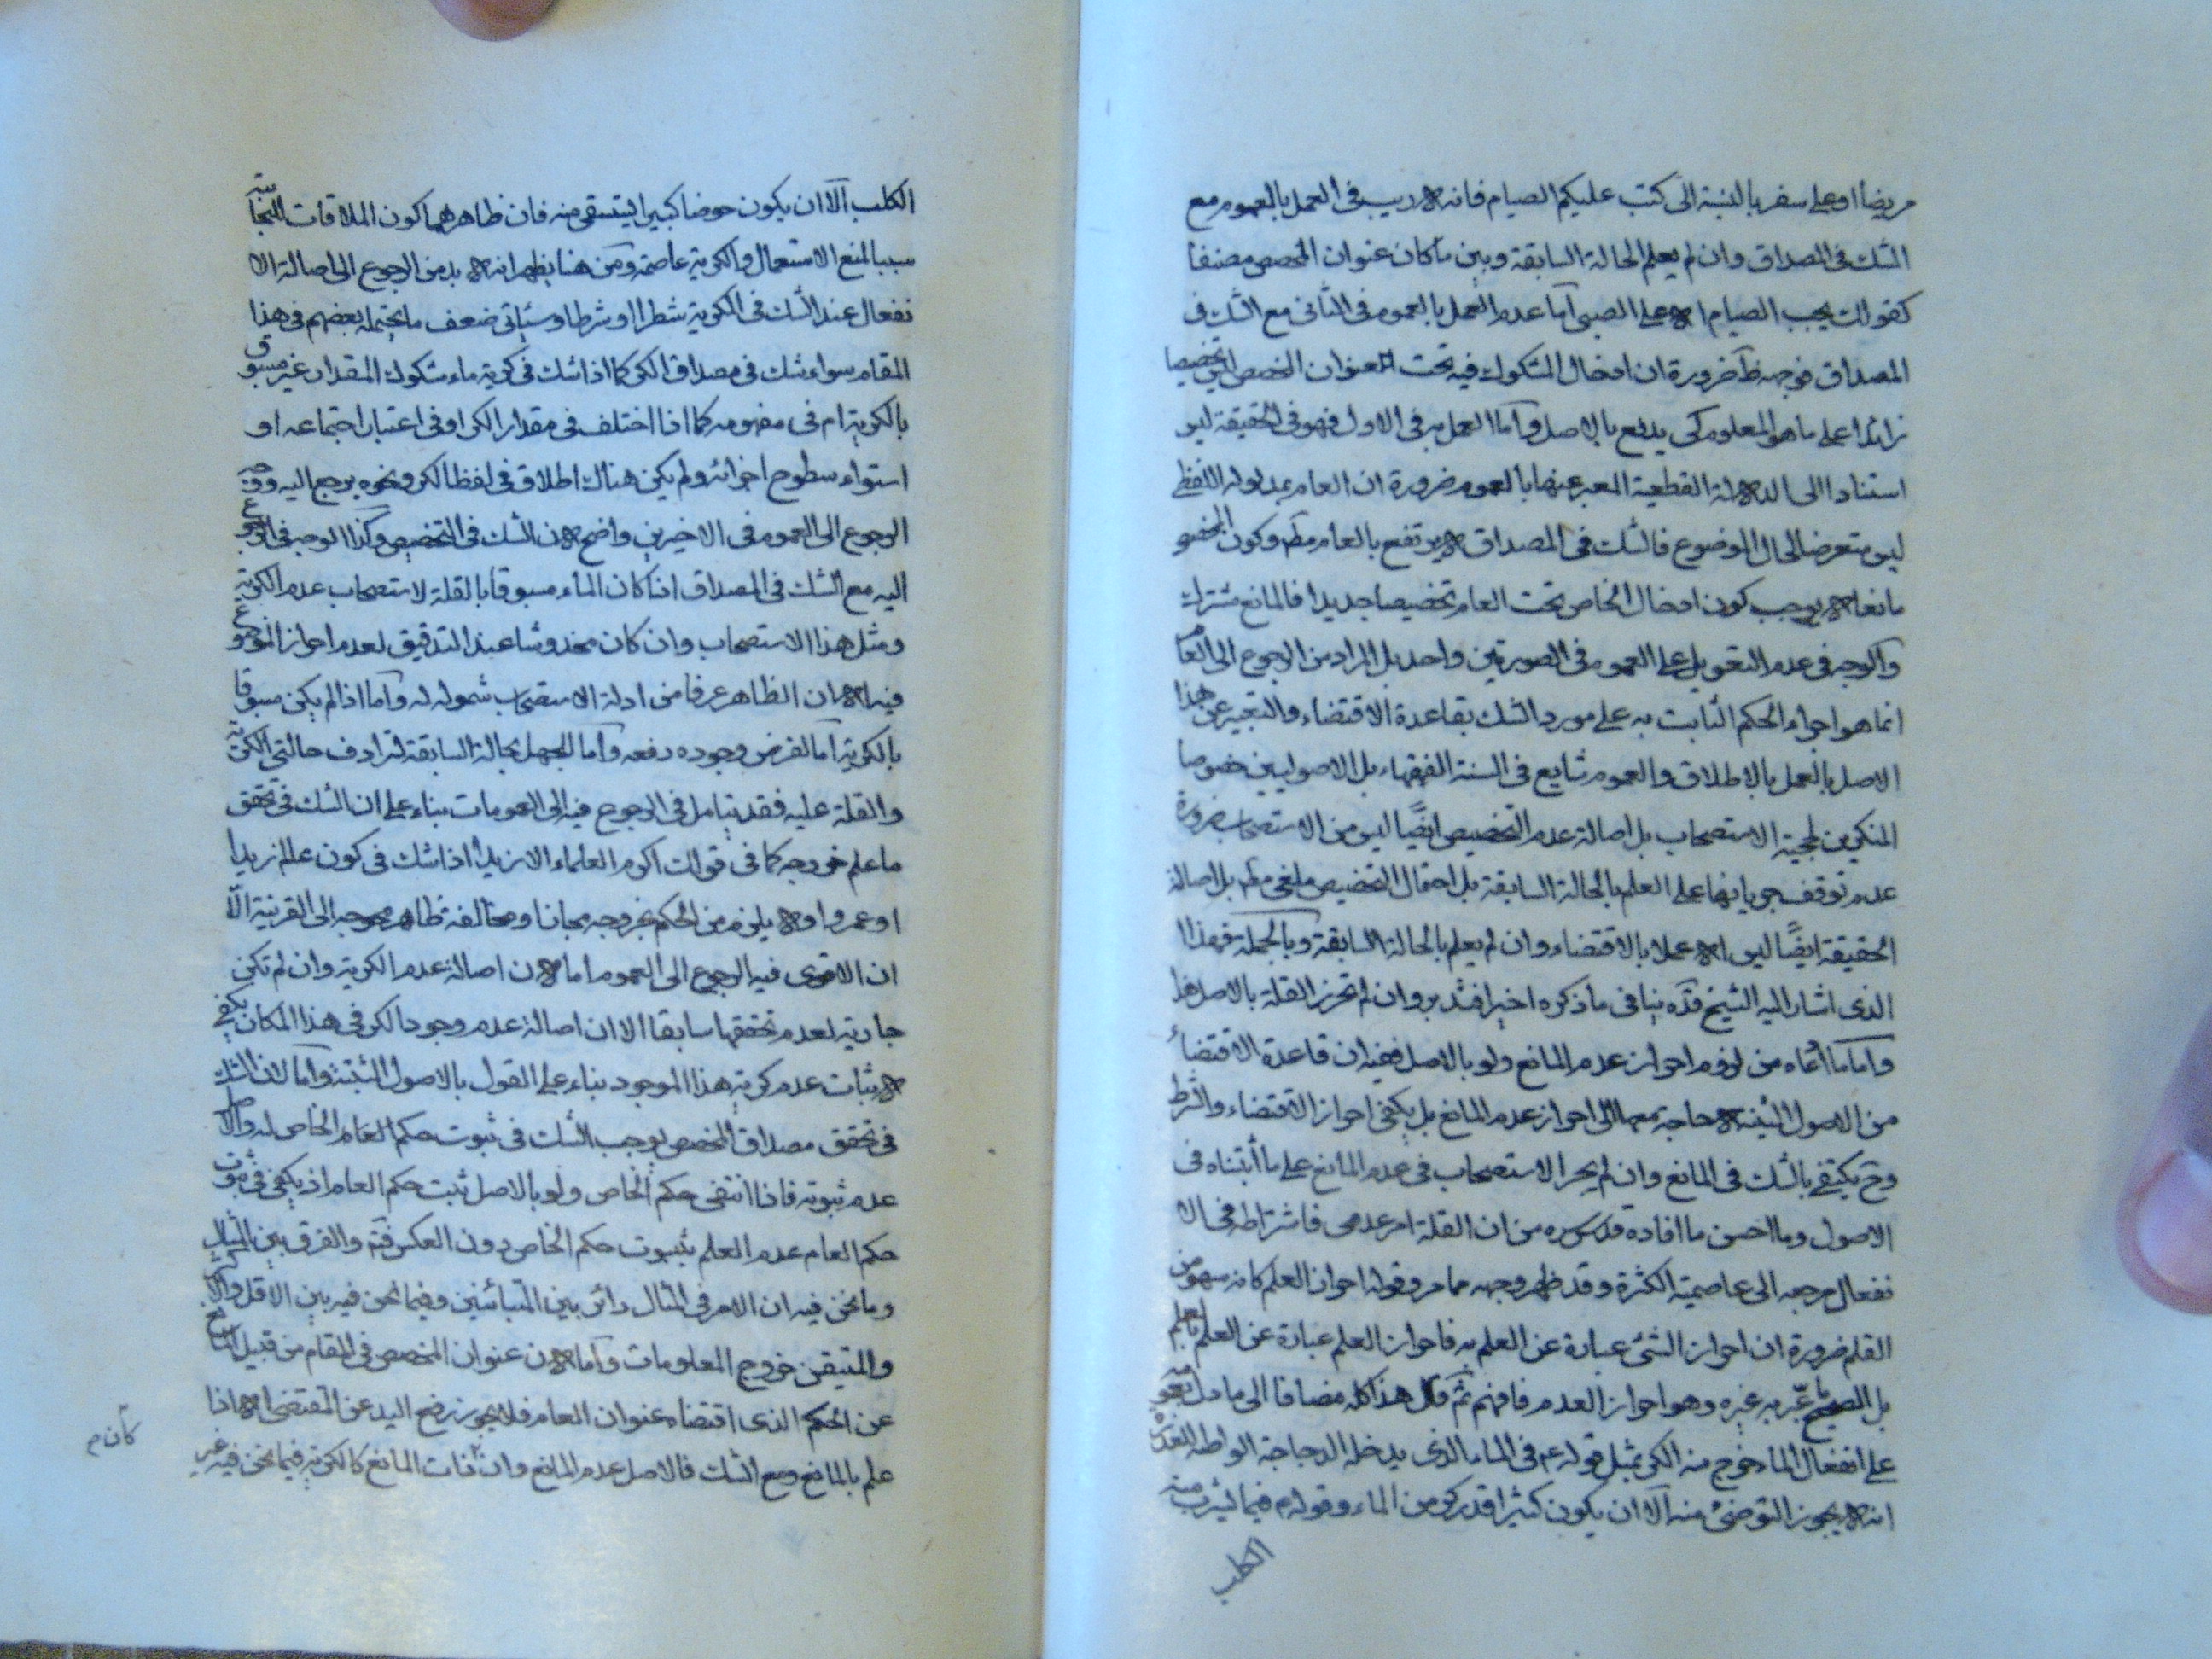 مريضا او على سفر بالنسبة الى كتب عليكم الصيام فانه لا ريب فى العمل بالعموم مع
الشك فى المصداق وان لم يعلم الحالة السابقة وبين ما كان عنوان المخصص مصنفا
كقولك يجب الصيام الا على الصبى اما عدم العمل بالعموم فى الثانى مع الشك فى
المصداق فوجهه ظ ضرورة ان ادخال المشكوك فيه تحت العنوان المخصص ليس تخصيصا
زائدا على ما هو المعلوم كى يدفع بالاصل واما العمل به فى الاول فهو فى الحقيقة ليس
استنادا الى الدلالة القطعية المعبر عنها بالعموم ضرورة ان العام بمدلوله اللفظى
ليس متعرضا لحال الموضوع فالشك فى المصداق لا يرتفع بالعام مطم وكون المخصو
مانعا لا يوجب كون ادخال الخاص تحت العام تخصيصا جديدا فالمانع مشترك
والوجه فى عدم التعويل على العموم فى الصورتين واحد بل المراد من الرجوع الى العام
انما هو اجراء الحكم الثابت به على مورد الشك بقاعدة الاقتضاء والتعبير عن هذا
الاصل بالعمل بالاطلاق والعموم شايع فى السنة الفقهاء بل الاصوليين خصوصا
المنكرين لحجية الاستصحاب بل اصالة عدم التخصيص ايضًا ليس من الاستصحاب ضرورة
عدم توقف جريانها على العلم بالحالة السابقة بل احتمال التخصيص ملغى مطم بل اصالة
الحقيقة ايضًا ليس الا عملا بالاقتضاء وان لم يعلم بالحالة السابقة وبالجملة فهذا
الذى اشار اليه الشيخ قده ينافى ما ذكره اخيرا فتدبر وان لم تحرز القلة بالاصل
واما ما ادعاه من لزوم احراز عدم المانع ولو بالاصل ففيه ان قاعدة الاقتضاء
من الاصول المثبتة لا حاجة معها الى احراز عدم المانع بل يكفى احراز الاقتضاء والشرط
وح يكتفى بالشك فى المانع وان لم يجر الاستصحاب فى عدم المانع على ما أثبتناه فى
الاصول وما احسن ما افاده قدس سره من ان القلة امر عدمى فاشتراطه فى الا
نفعال مرجعه الى عاصمية الكثرة وقد ظهر وجهه مما مر وقوله احراز العلم كانه سهو من
القلم ضرورة ان احراز الشئ عبارة عن العلم به فاحراز العلم عبارة عن العلم بالعلم
بل الصحيح ما عبّر به غيره وهو احراز العدم فافهم ثم قال هذا كله مضافا الى ما دل بعمومه
على انفعال الماء خرج منه الكر بمثل قوله ع فى الماء الذى يدخله الدجاجة الواطئة للعذرة
انه لا يجوز التوضئ منه الا ان يكون كثيرا قدر كر من الماء وقوله ع فيما يشرب منه
الكلب
الكلب الا ان يكون حوضا كبيرا يستسقى منه فان ظاهرهما كون الملاقات للنجاسة
سببا لمنع الاستعمال والكرية عاصمة ومن هنا يظهر انه لا بد من الرجوع الى اصالة الا
نفعال عند الشك فى الكرية شطرا او شرطا وسيأتى ضعف ما يحتمله بعضهم فى هذا
المقام سواء شك فى مصداق الكر كما اذا شك فى كرية ماء مشكوك المقدار غير مسبوق
بالكرية ام فى مفهومه كما اذا اختلف فى مقدار الكر او فى اعتبار اجتماعه او
استواء سطوح اجزائه ولم يكن هناك اطلاق فى لفظ الكر ونحوه يرجع اليه ووجه
الرجوع الى العموم فى الاخيرين واضح لان الشك فى التخصيص وكذا الوجه فى الرجوع
اليه مع الشك فى المصداق اذا كان الماء مسبوقا بالقلة لاستصحاب عدم الكرية
ومثل هذا الاستصحاب وان كان مخدوشا عند التدقيق لعدم احراز الموضوع
فيه الا ان الظاهر عرفا من ادلة الاستصحاب شموله له واما اذا لم يكن مسبوقا
بالكرية اما لفرض وجوده دفعه واما للجهل بحالة السابقة لترادف حالتى الكرية
والقلة عليه فقد يتامل فى الرجوع فيه الى العمومات بناء على ان الشك فى تحقق
ما علم خروجه كما فى قولك اكرم العلماء الا زيدا اذا شك فى كون عالم زيدا
او عمروا ولا يلزم من الحكم بخروجه مجازا ومخالفة ظاهر محوجه الى القرينة الّا
ان الاقوى فيه الرجوع الى العموم اما لان اصالة عدم الكرية وان لم تكن
جارية لعدم تحققها سابقا الا ان اصالة عدم وجود الكر فى هذا المكان يكفى
لاثبات عدم كرية هذا الموجود بناء على القول بالاصول المثبتة واما لان الشك
فى تحقق مصداق المخصص يوجب الشك فى ثبوت حكم الخاص له والاصل
عدم ثبوته فاذا انتفى حكم الخاص ولو بالاصل ثبت حكم العام اذ يكفى فى ثبوت
حكم العام عدم العلم بثبوت حكم الخاص دون العكس فتم والفرق بين المثال
وما نحن فيه ان الامر فى المثال دائر بين المتبائنين وفيما نحن فيه بين الاقل والاكثر
والمتيقن خروج المعلومات واما لان عنوان المخصص فى المقام من قبيل المانع
عن الحكم الذى اقتضاه عنوان العام فلا يجوز رفع اليد عن المقتضى الا اذا
علم بالمانع ومع الشك فالاصل عدم المانع وان كانت المانع كالكرية فيما نحن فيه غير
كان م